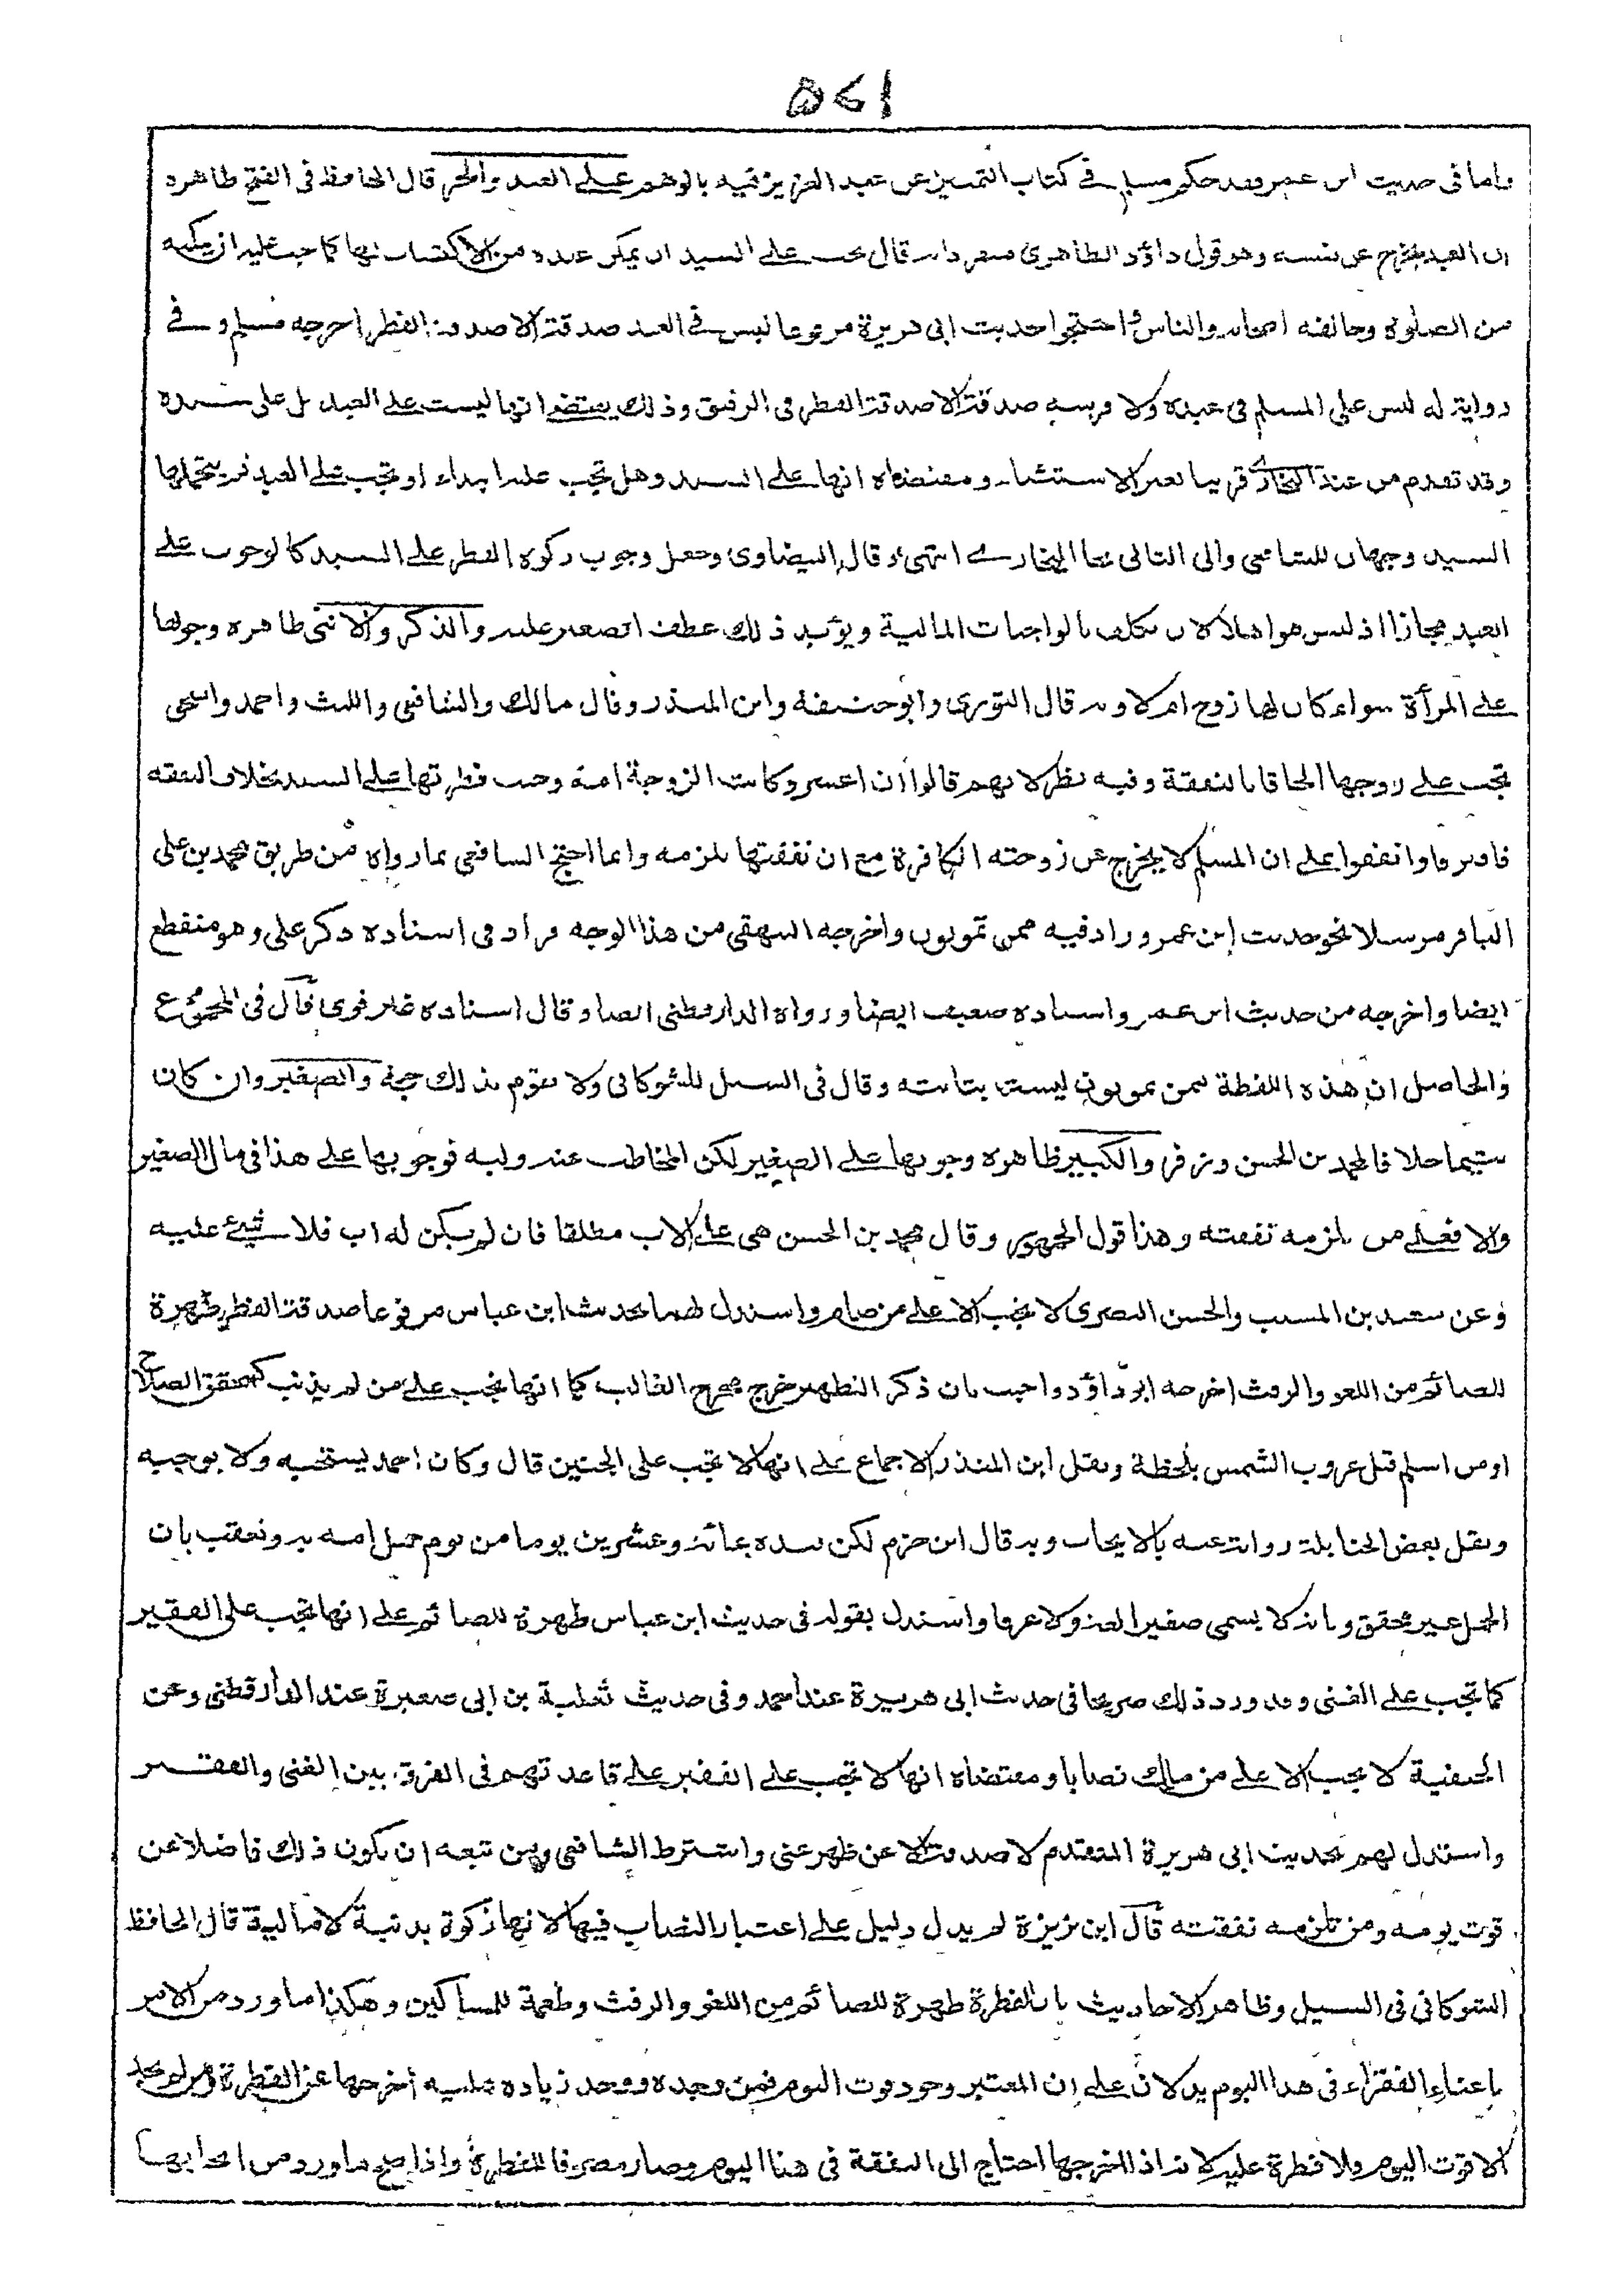 ٥٧١
واما فى حديث ابن عمر فقد حكم مسلم فى كتاب التمييز عن عبد العزيز فيه بالوهم على العبد والحر قال الحافظ فى الفتح ظاهره
ان العبد يخرج عن نفسه وهو قول داؤد الظاهرى منفردا به قال يجب على السيد ان يمكن عبده من الاكتساب لها كما يجب عليه ان يمكنه
من الصلوة وخالفه اصحابه والناس واحتجوا بحديث ابى هريرة مرفوعا ليس فى العبد صدقة الا صدقة الفطر اخرجه مسلم وفى
رواية له ليس على المسلم فى عبده ولا فرسه صدقة الا صدقة الفطر فى الرقيق وذلك يقتضى انها ليست على العبد بل على سيده
وقد تقدم من عند البخارى قريبا بغير الاستثناء ومقتضاه انها على السيد وهل تجب عليه ابتداء او تجب على العبد ثم يتحملها
السيد وجهان للشافعى والى الثانى نحا البخارى انتهى وقال البيضاوى وجعل وجوب زكوة الفطر على السيد كالوجوب على
العبد مجازا اذ ليس هو اهلا لان يكلف بالواجبات المالية ويؤيد ذلك عطف الصغير عليه والذكر والانثى ظاهره وجوبها
على المرأة سواء كان لها زوج ام لا وبه قال الثورى وابو حنيفة وابن المنذر وقال مالك والشافعى والليث واحمد واسحق
تجب على زوجها الحاقا بالنفقة وفيه نظر لانهم قالوا ان اعسر وكانت الزوجة امة وجبت فطرتها على السيد بخلاف النفقة
فافترقا واتفقوا على ان المسلم لا يخرج عن زوجته الكافرة مع ان نفقتها تلزمه وانما احتج الشافعى بما رواه من طريق محمد بن على
الباقر مرسلا نحو حديث ابن عمر وزاد فيه ممن تمونون واخرجه البيهقى من هذا الوجه فزاد فى اسناده ذكر على وهو منقطع
ايضا واخرجه من حديث ابن عمر واسناده ضعيف ايضا ورواه الدارقطنى ايضا وقال اسناده غير قوى قال فى المجموع
والحاصل ان هذه اللفظة ممن تمونون ليست بثابتة وقال فى السيل للشوكانى ولا تقوم بذلك حجة والصغير وان كان
يتيما خلافا لمحمد بن الحسن وزفر والكبير ظاهره وجوبها على الصغير لكن المخاطب عنه وليه فوجوبها على هذا فى مال الصغير
والا فعلى من تلزمه نفقته وهذا قول الجمهور وقال محمد بن الحسن هى على الاب مطلقا فان لم يكن له اب فلا شيئ عليه
وعن سعيد بن المسيب والحسن البصرى لا تجب الا على من صام واستدل لهما بحديث ابن عباس مرفوعا صدقة الفطر طهرة
للصائم من اللغو والرفث اخرجه ابو داؤد واجيب بان ذكر التطهير خرج مخرج الغالب كما انها تجب على من لم يذنب كمتحقق الصلاح
او من اسلم قبل غروب الشمس بلحظة ونقل ابن المنذر الاجماع على انها لا تجب على الجنين قال وكان احمد يستحبه ولا يوجبه
ونقل بعض الحنابلة رواية عنه بالايجاب وبه قال ابن حزم لكن قيده بمائة وعشرين يوما من يوم حمل امه به وتعقب بان
الحمل غير محقق وبانه لا يسمى صغيرا لغة ولا عرفا واستدل بقوله فى حديث ابن عباس طهرة للصائم على انها تجب على الفقير
كما تجب على الغنى وقد ورد ذلك صريحا فى حديث ابى هريرة عند احمد وفى حديث ثعلبة بن ابى صعيرة عند الدارقطنى وعن
الحنفية لا تجب الا على من ملك نصابا ومقتضاه انها لا تجب على الفقير على قاعدتهم فى الفرق بين الغنى والفقير
واستدل لهم بحديث ابى هريرة المتقدم لا صدقة الا عن ظهر غنى واشترط الشافعى ومن تبعه ان يكون ذلك فاضلا عن
قوت يومه ومن تلزمه نفقته قال ابن بزيزة لم يدل دليل على اعتبار النصاب فيها لانها زكوة بدنية لا مالية قال الحافظ
الشوكانى فى السيل وظاهر الاحاديث بان الفطرة طهرة للصائم من اللغو والرفث وطعمة للمساكين وهكذا ما ورد من الامر
باغناء الفقراء فى هذا اليوم يدلان على ان المعتبر وجود قوت اليوم فمن وجده ووجد زيادة عليه اخرجها عن الفطرة ومن لم يجد
الا قوت اليوم فلا فطرة عليه لانه اذا اخرجها احتاج الى النفقة فى هذا اليوم وصار مصرفا للفطرة واذا صح ما ورد من ايجابها